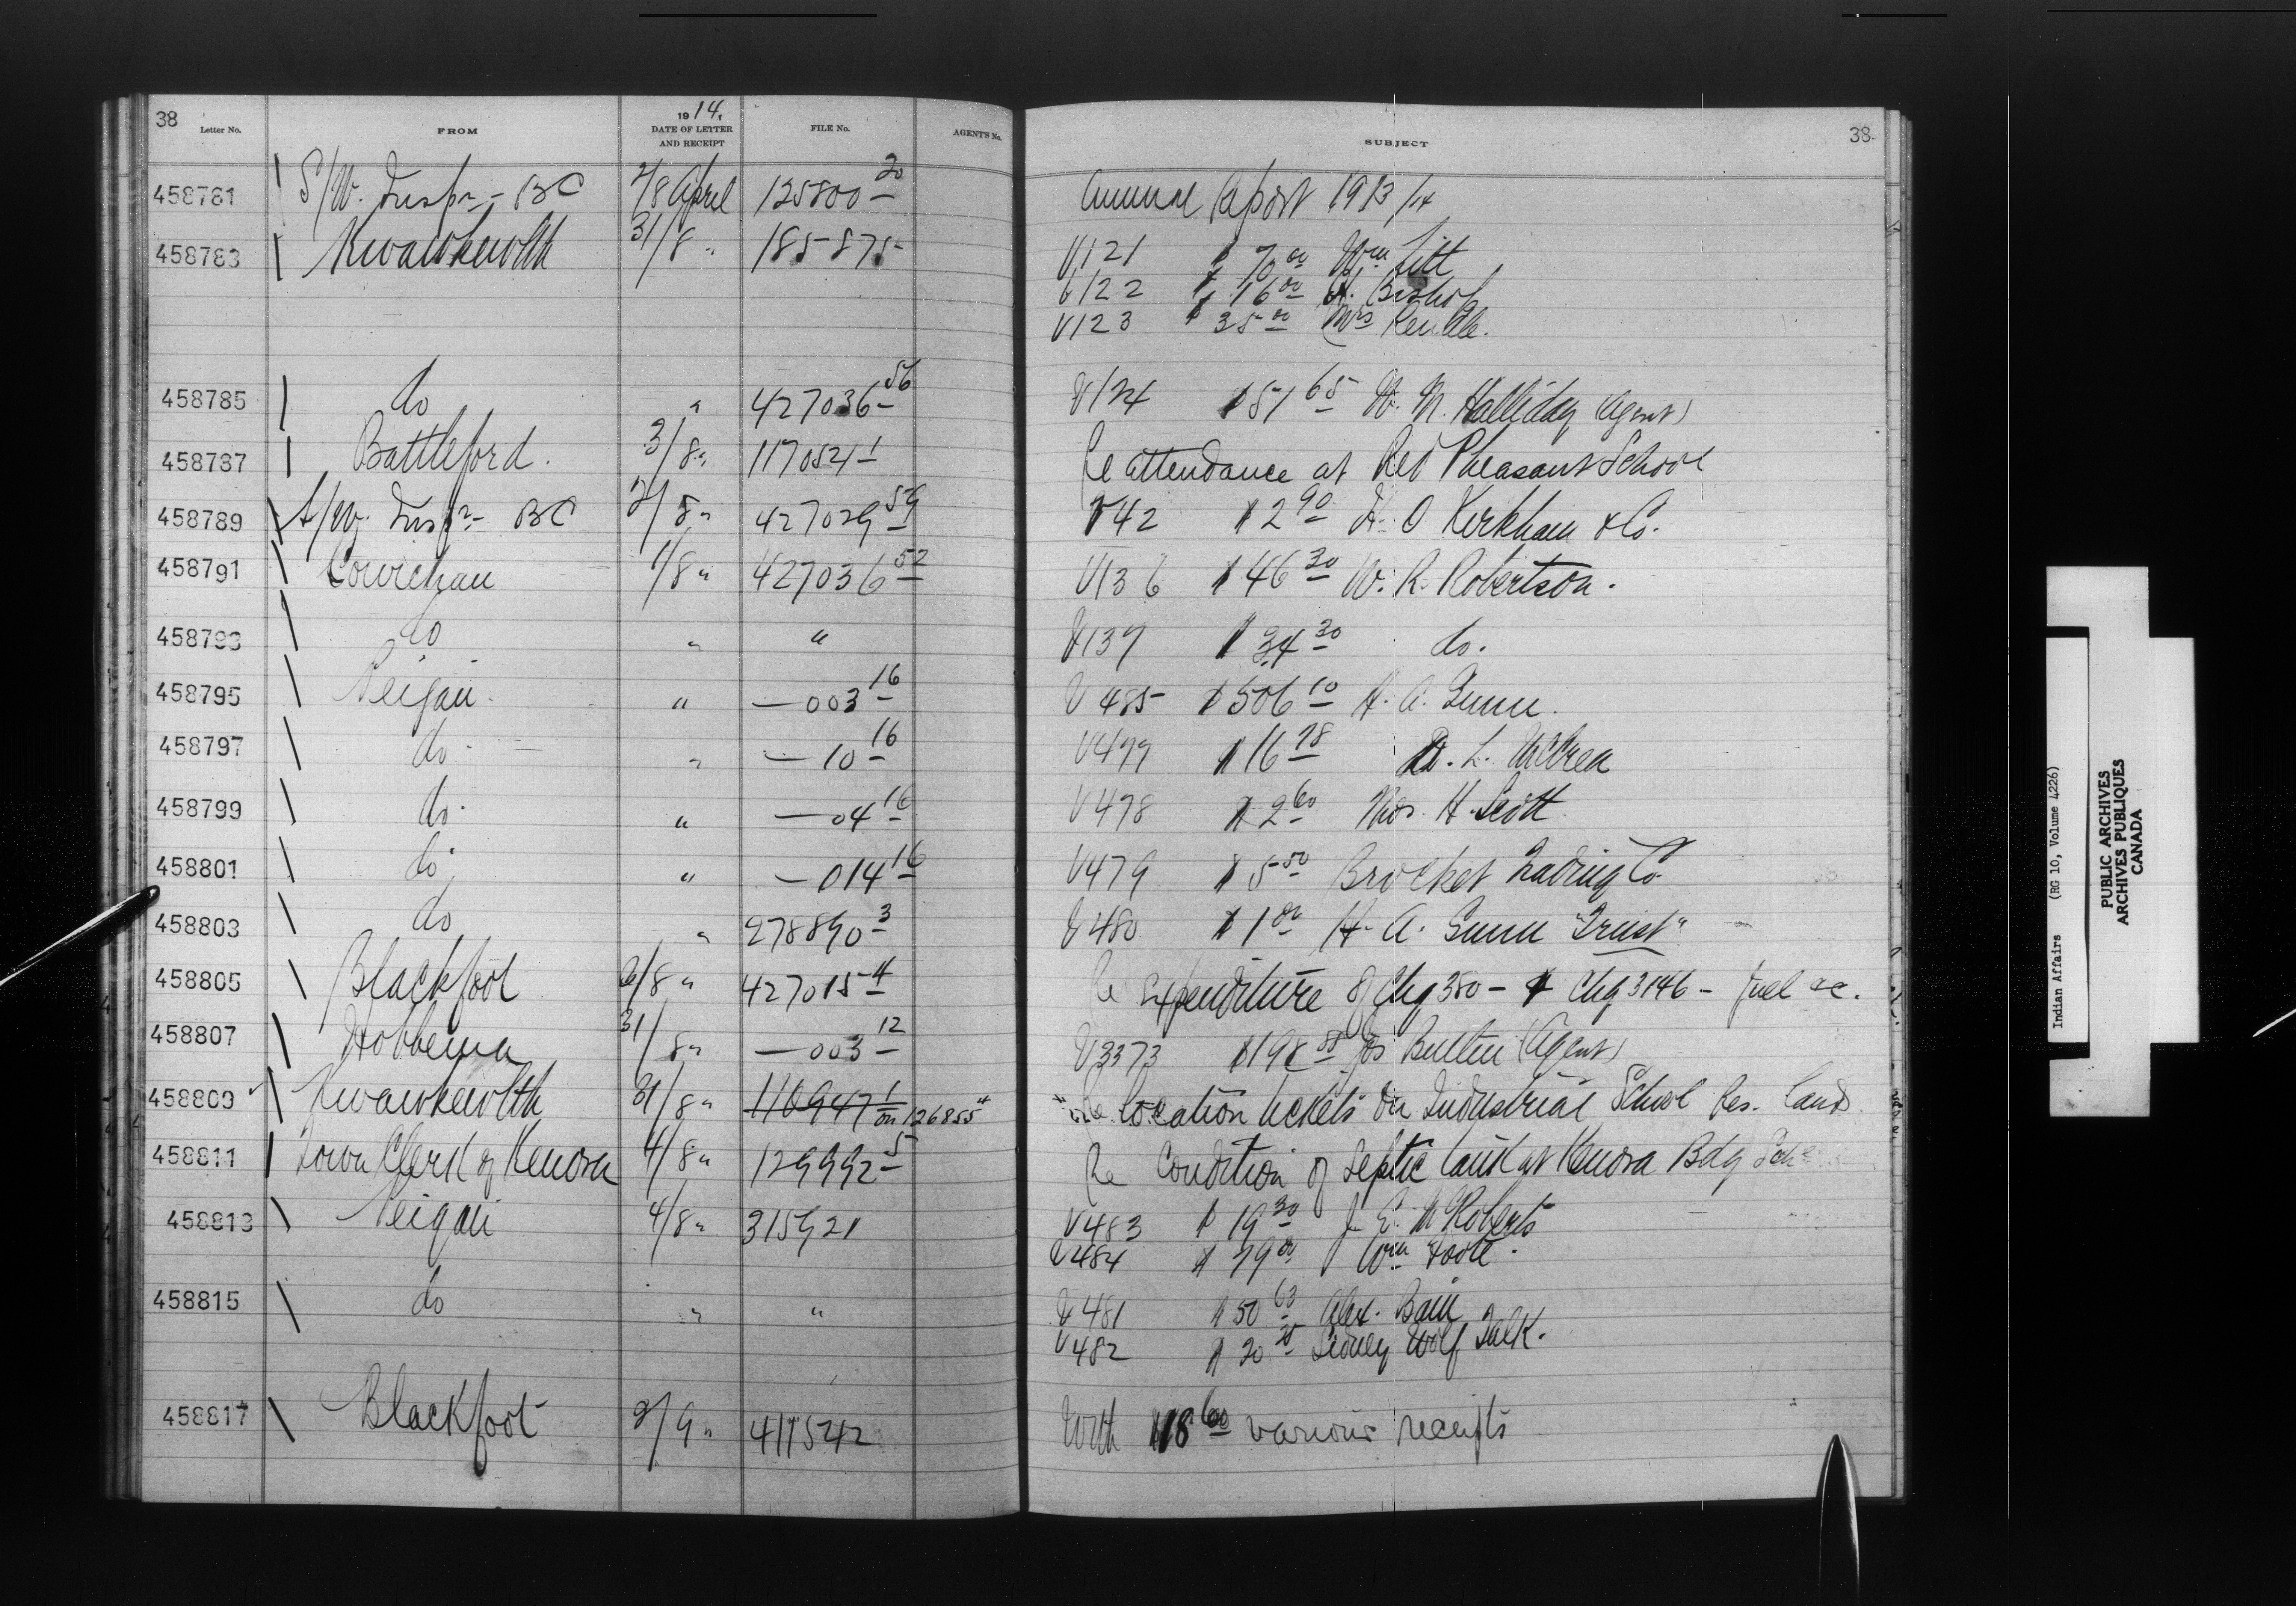 38
Letter No. FROM 1914, DATE OF LETTER AND RECEIPT FILE No. AGENT'S No. SUBJECT 38
458781 S/W. Inspr - BC 2/8 April 125800-20 Annual Report 1913/14
458783 Kwawkewlth 31/8 " 185875 V121 $70.00 Wm Litt
V122 $16.00 A. Bishop
V123 $35.00 Mrs Kendle.
458785 do " 427036-56 V124 $51.65 W. M. Halliday (Agent)
458787 Battleford. 3/8 " 117052-1 Re attendance at Red Pheasant School
458789 S/W. Inspr - BC 2/8 " 427029-59 V42 $2.90 H. O Kirkham & Co.
458791 Cowichan 1/8 " 427036-52 V136 $46.30 W. R. Robertson.
458793 do " " V137 $34.30 do.
458795 Peigan " —003-16 V485 $506.10 H. A. Gunn.
458797 do " —10-16 V477 $16.78 D. L. McCrea
458799 do " —04-16 V478 $2.60 Thos. H. Scott
458801 do " —014-16 V479 $5.50 Brocket Trading Co.
458803 do " 278890-3 V480 $1.00 H. A. Gunn "Trust"
458805 Blackfoot 6/8 " 427015-4 Re expenditure of Chq 380 - & Chq 3146 - fuel &c.
458807 Hobbema 31/8 " —003-12 V3373 $198.88 Jos Butlin (Agent)
458809 Kwawkewlth 31/8 " 116947-1 on 126855 Re location tickets on Industrial School Res. lands
458811 Town Clerk of Kenora 4/8 " 129992-5 Re Condition of Septic tank at Kenora Bdg Sch
458813 Peigan 4/8 " 315921 V483 $19.30 J. E. McRoberts
V484 $79.00 Wm Foote.
458815 do " " V481 $50.63 Alex. Bain
V482 $20.25 Sidney Wolf Talk.
458817 Blackfoot 2/9 " 411542 With $18.60 various receipts
Indian Affairs (RG 10, Volume 4226)
PUBLIC ARCHIVES
ARCHIVES PUBLIQUES
CANADA